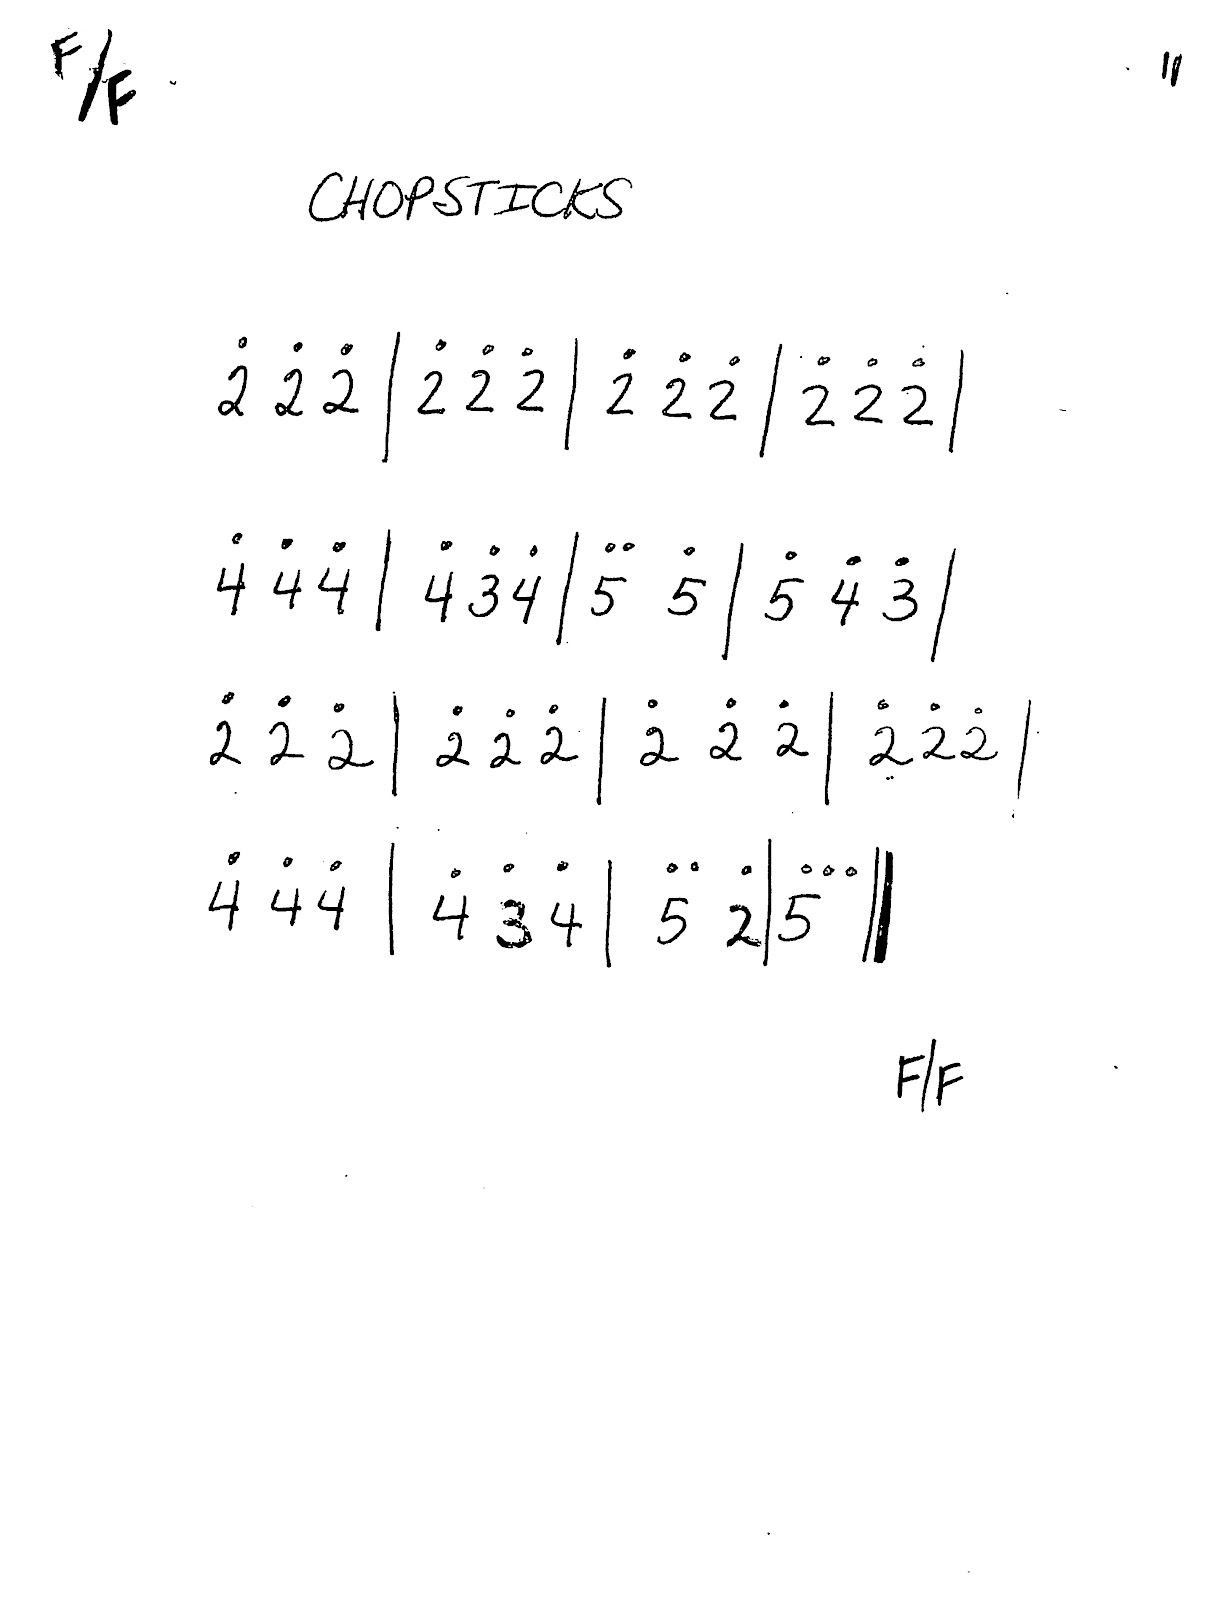 F/F 11
CHOPSTICKS
2 2 2 | 2 2 2 | 2 2 2 | 2 2 2 |
4 4 4 | 4 3 4 | 5 5 | 5 4 3 |
2 2 2 | 2 2 2 | 2 2 2 | 2 2 2 |
4 4 4 | 4 3 4 | 5 2 | 5 ||
F/F